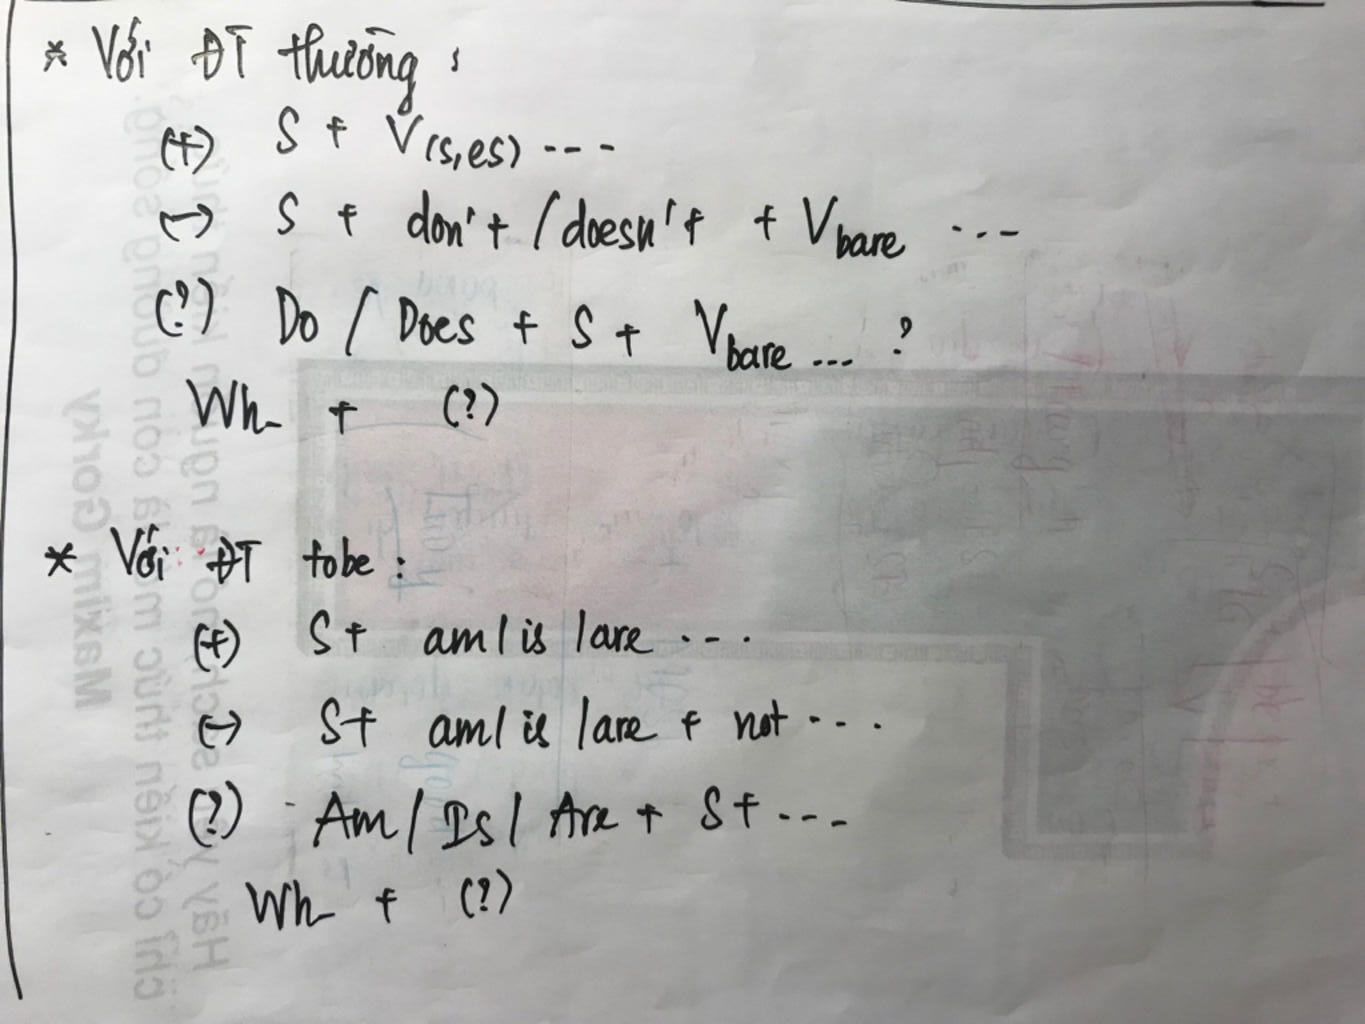 * Với ĐT thường :
(+) S + V(s,es) ---
(-) S + don't / doesn't + Vbare ---
(?) Do / Does + S + Vbare ... ?
Wh_ + (?)
* Với ĐT tobe :
(+) S + am / is / are ...
(-) S + am / is / are + not ...
(?) Am / Is / Are + S + ---
Wh_ + (?)
Maxim Gorky